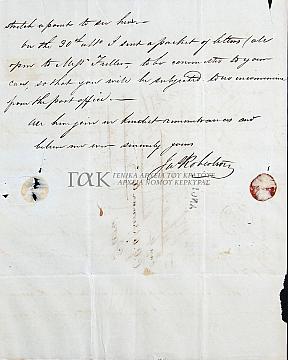 stretch a point to see him. —
On the 30th ulto I sent a packet of letters (all
open to Messrs Fuller, to be committed to your
care, so that you will be subjected to no
from the post office. —
All here join in kindest remembrances and
believe me ever sincerely yours
Jas Robertson
ΓΑΚ ΓΕΝΙΚΑ ΑΡΧΕΙΑ ΤΟΥ ΚΡΑΤΟΥΣ
ΑΡΧΕΙΑ ΝΟΜΟΥ ΚΕΡΚΥΡΑΣ